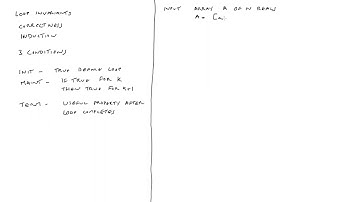 LOOP INVARIANTS
CORRECTNESS
INDUCTION
3 CONDITIONS
INIT - TRUE BEFORE LOOP
MAINT - IF TRUE FOR K
THEN TRUE FOR K+1
TERM - USEFUL PROPERTY AFTER
LOOP COMPLETES
INPUT ARRAY A OF N REALS
A = [